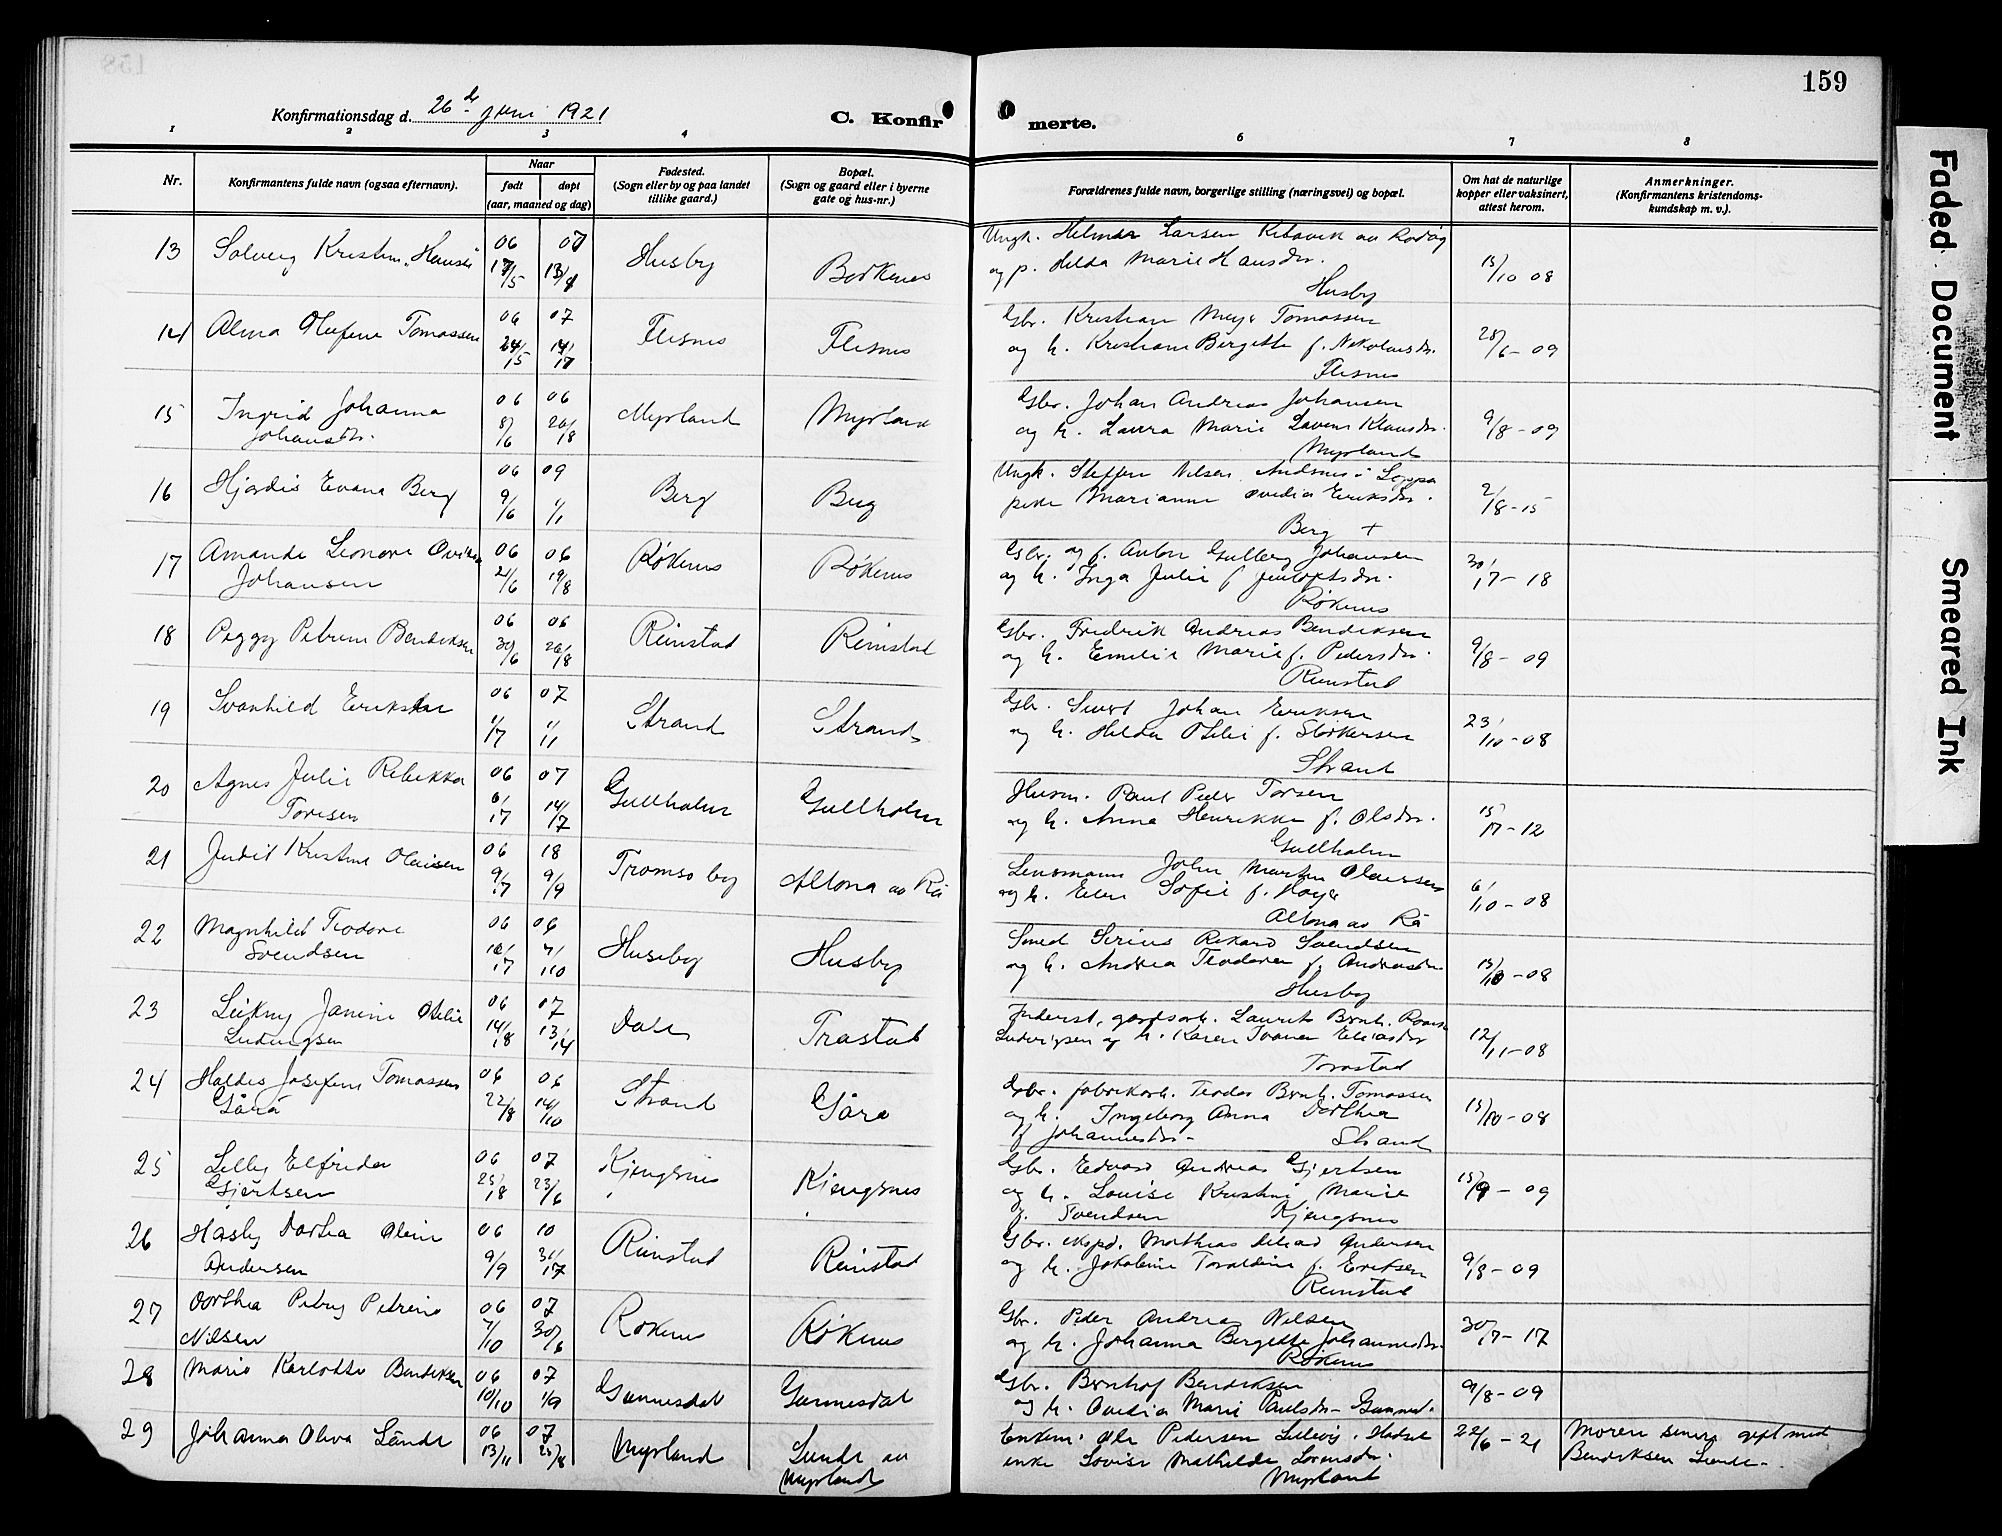 159
Konfirmationsdag d. 26de juni 1921
C. Konfir merte.
1 2 3 4 6 7 8
Nr.
Konfirmantens fulde navn (ogsaa efternavn).
Naar
født døpt
(aar, maaned og dag)
Fødested.
(Sogn eller by og paa landet
tillike gaard.)
Bopæl.
(Sogn og gaard eller i byerne
gate og hus-nr.)
Forældrenes fulde navn, borgerlige stilling (næringsvei) og bopæl.
Om hat de naturlige
kopper eller vaksinert,
attest herom.
Anmerkninger.
(Konfirmantens kristendoms-
kundskap m. v.).
13 Solveig Kristin. 06 07 Husby Borkenes Ungk. Helmer Larsen
og p. Hilda Marie Hansdtr.
Husby 15/10 08
14 Alma Olufine Tomassen 06 07 Flesnes Flesnes Gbr. Kristian Meyer Tomassen
og h. Kristiane Bergitte f. Nikolaisdtr.
Flesnes 28/6 - 09
15 Ingrid Johanna 06 06 Myrland Myrland Gbr. Johan Andreas Johansen
Johansdtr. 8/6 26/8 og h. Laura Marie Klausdtr.
Myrland 9/8 - 09
16 Hjørdis Evana Berg 06 09 Berg Berg Ungk. Steffen Nilsen Andsnes i Loppa
9/6 1/1 pike Marianne Ovedia Eriksdtr.
Berg + 2/8 - 15
17 Amanda Leonore 06 06 Røkenes Røkenes Gbr. og f. Anton Gulberg Johansen
Johansen 21/6 19/8 og h. Inga Julie f.
Røkenes 30/7 - 18
18 Peggy Petrine Bendiksen 06 06 Reinstad Reinstad Gbr. Fredrik Andreas Bendiksen
30/6 26/8 og h. Emelie Marie f. Pedersdtr.
Reinstad 9/8 - 09
19 Svanhild 06 07 Strand Strand Gbr. Sivert Johan Eriksen
1/7 1/1 og h. Helda Otelie f. Storkersen
Strand 23/10 - 08
20 Agnes Julie Rebekka 06 07 Gullholm Gullholm Husm. Paul Peder Torsen
Toresen 6/7 14/7 og h. Anna Henrikke f. Olsdtr.
Gullholm 15/7 - 12
21 Judit Kristine Olaisen 06 18 Tromsø by Altona av Rå Lensmann John Martin Olaussen
9/7 9/9 og h. Elen Sofie f. Høyer
Altona av Rå 6/10 - 08
22 Magnhild Teodora 06 06 Huseby Husby Smed Sirius Rikard Svendsen
Svendsen 7/10 og h. Andrea Teodora f. Andreasdtr.
Husby 15/10 - 08
23 Leikny Janine Otelie 06 07 Dale Trastad Inderst, gardsarb. Laurits Bernh.
Ludvigsen 14/8 13/14 Ludvigsen og h. Karen Ivana Eliasdtr
Trastad 12/11 - 08
24 Haldis Josefine Tomassen 06 06 Strand Gåra Gbr. fabrikarb. Teodor Bernh. Tomassen
Gårå 22/8 14/10 og h. Ingeborg Anna Dorthea
f. Johannesdtr. - Strand 15/10 - 08
25 Lilly Elfrida 06 07 Kjengsnes Kjengsnes Gbr. Edvard Andreas Gjertsen
Gjertsen 25/8 23/6 og h. Louise Kristine Marie
f. Svendsen Kjengsnes 15/9 - 09
26 Hasly Dortea Oline 06 10 Reinstad Reinstad Gbr. eksped. Mathias Andersen
Andersen 9/9 og h. Jakobine Toraldine f. Eriksen
Reinstad 9/8 - 09
27 Dorthea Petry Petrine 06 07 Røkenes Røkenes Gbr. Peder Andreas Nilsen
Nilsen 7/10 30/6 og h. Johanna Bergitte Johannesdtr.
Røkenes 30/7 - 17
28 Marie Karlotte Bendiksen 06 07 Gunnesdal Gunnesdal Gbr. Bernhof Bendiksen
10/10 1/9 og h. Ovedia Marie Paulsdtr. Gunnesd. 9/8 - 09
29 Johanna Oliva Lunde 06 07 Myrland Lunde av Enkem. Ole Pedersen Hadsel 22/6 - 21 Moren senere gift med
13/11 25/8 Myrland enke Lovise Mathilde Sørensdtr. Bendiksen Lunde.
Myrland
Faded Document
Smeared Ink